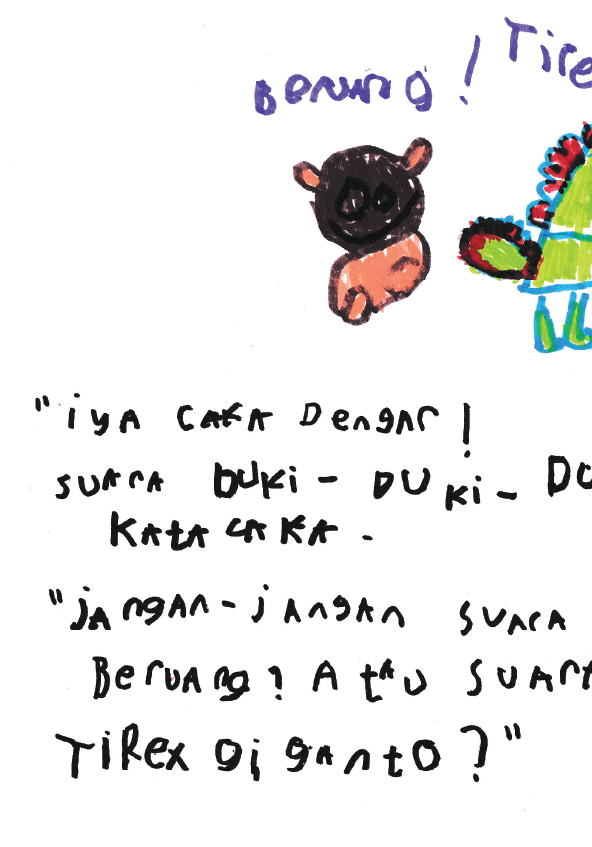 Beruang! Tire
"iyA CAKA Dengar!
SUArA DUKi - DUKi - DU
KAtA CAKA.
"jAngAn - jAngAn SUArA
BerUAng? AtAU SUAr
TiRex GigAntO?"